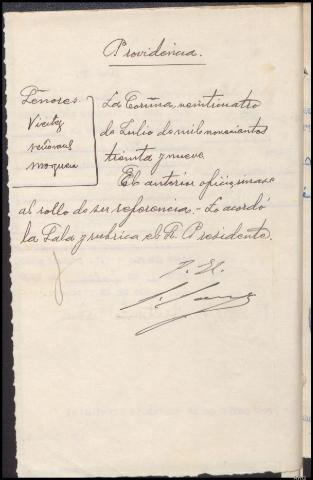 Providencia.
Señores.
La Coruña, veinticuatro
de Julio de mil novecientos
treinta y nueve.
El anterior oficio, únase
al rollo de su referencia.- Lo acordó
la Sala y rubrica el Sr. Presidente.